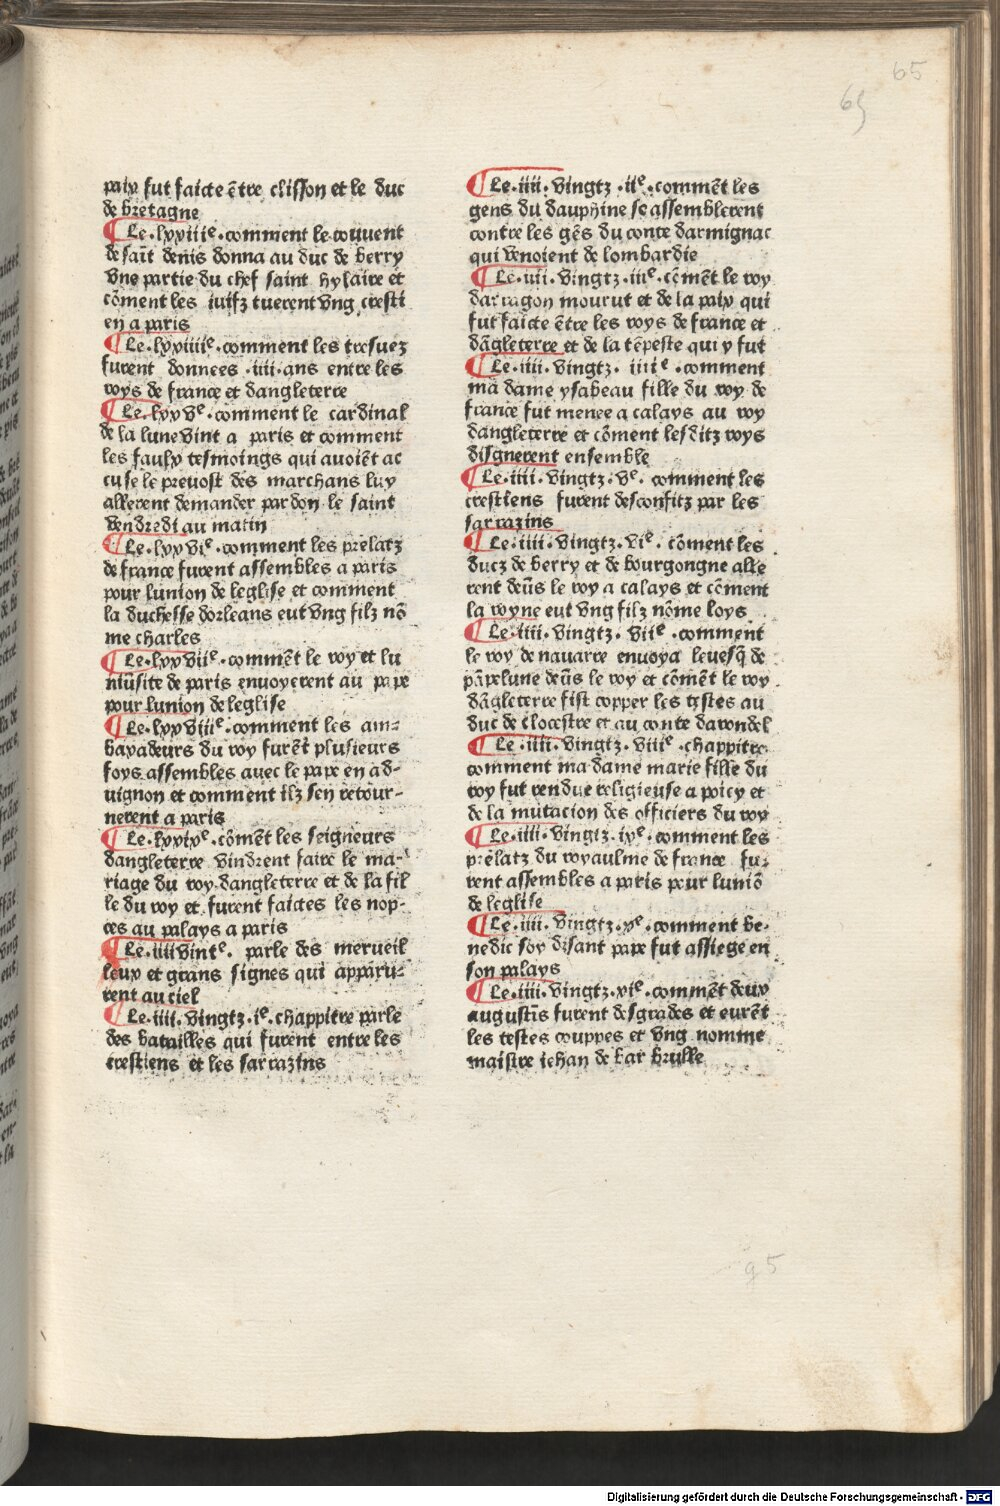 65
65
paix fut faicte ẽtre clisson et le duc
de bretagne
¶ Le.lxxiiiᵉ.comment le couvent
de saĩt denis donna au duc de berry
vne partie du chef saint hylaire et
cõment les iuifz tuerent vng cresti
en a paris
¶ Le.lxxiiiiᵉ.comment les tresuez
furent donnees .iiii.ans entre les
roys de france et dangleterre
¶ Le.lxxvᵉ.comment le cardinal
de la lune vint a paris et comment
les faulx tesmoings qui avoiẽt ac
cuse le prevost des marchans luy
allerent demander pardon le saint
vendredi au matin
¶ Le.lxxviᵉ.comment les prelatz
de france furent assembles a paris
pour lunion de leglise et comment
la duchesse dorleans eut vng filz nõ
me charles
¶ Le.lxxviiᵉ.commẽt le roy et lu
niũsite de paris envoyerent au pape
pour lunion de leglise
¶ Le.lxxviiiᵉ.comment les am-
baxadeurs du roy furẽt plusieurs
foys assembles avec le pape en ad-
uignon et comment ilz sen retour-
nerent a paris
¶ Le.lxxixᵉ.cõmẽt les seigneurs
dangleterre vindrent faire le ma-
riage du roy dangleterre et de la fil
le du roy et furent faictes les nop-
ces au palays a paris
¶ Le.iiiivintᵉ. parle des merueil
leux et grans signes qui apparu-
rent au ciel
¶ Le.iiii.vingtz.iᵉ.chappitre parle
des batailles qui furent entre les
crestiens et les sarrazins
¶ Le.iiii.vingtz.iiᵉ.commẽt les
gens du dauphine se assemblerent
contre les gẽs du conte darmignac
qui venoient de lombardie
¶ Le.iiii.vingtz.iiiᵉ.cõmẽt le roy
darragon mourut et de la paix qui
fut faicte ẽtre les roys de france et
dãgleterre et de la tẽpeste qui y fut
¶ Le.iiii.vingtz. iiiiᵉ.comment
ma dame ysabeau fille du roy de
france fut menee a calays au roy
dangleterre et cõment lesditz roys
disgnerent ensemble
¶ Le.iiii.vingtz.vᵉ. comment les
crestiens furent desconfitz par les
sarrazins
¶ Le.iiii.vingtz.viᵉ. cõment les
ducz de berry et de bourgongne alle
rent deũs le roy a calays et cõment
la royne eut vng filz nõme loys
¶ Le.iiii.vingtz. viiᵉ.comment
le roy de navarre envoya levesq̃ de
pãpelune deũs le roy et cõmẽt le roy
dãgleterre fist copper les testes au
duc de clocestre et au conte darondel
¶ Le .iiii.vingtz.viiiᵉ.chappitre
comment ma dame marie fille du
roy fut rendue religieuse a poicy et
de la mutacion des officiers du roy
¶ Le.iiii.vingtz.ixᵉ.comment les
prelatz du royaulme de france fu-
rent assembles a paris pour luniõ
de leglise
¶ Le.iiii.vingtz.xᵉ.comment be-
nedic soy disant pape fut assiege en
son palays
¶ Le.iiii.vingtz.xiᵉ.commẽt deux
augustĩs furent desgrades et eurẽt
les testes couppes et vng nomme
maistre iehan de bar brulle
g5
Digitalisierung gefördert durch die Deutsche Forschungsgemeinschaft - DFG